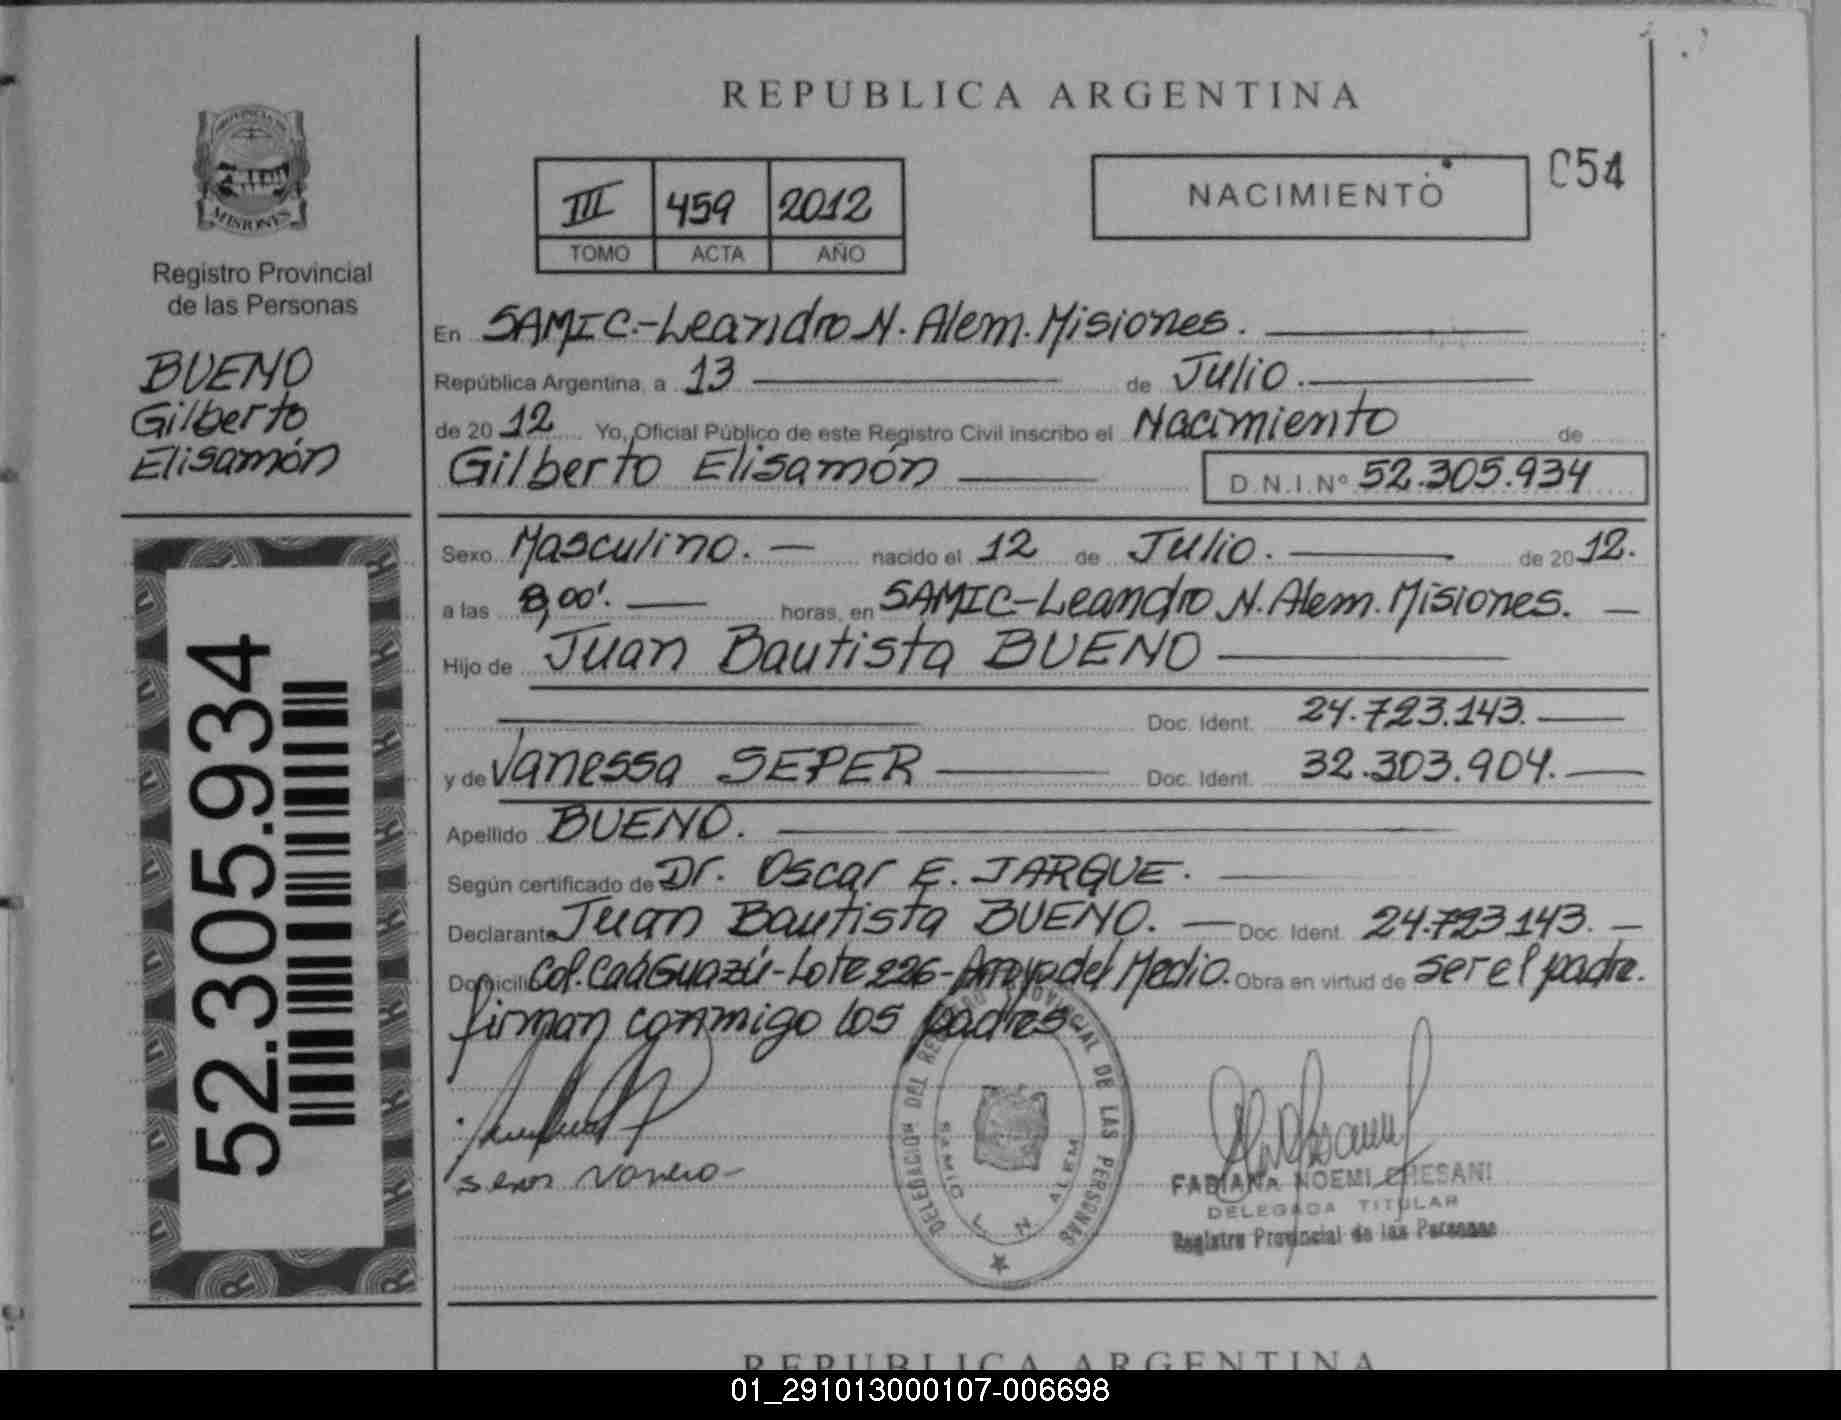 REPUBLICA ARGENTINA
PROVINCIA DE
MISIONES
Registro Provincial
de las Personas
BUENO
Gilberto
Elisamón
52.305.934
III 459 2012
TOMO ACTA AÑO
NACIMIENTO
054
En SAMIC.-Leandro N. Alem. Misiones.
República Argentina, a 13 de Julio.
de 20 12 Yo, Oficial Público de este Registro Civil inscribo el Nacimiento de
Gilberto Elisamón D.N.I.Nº 52.305.934
Sexo Masculino. nacido el 12 de Julio. de 20 12.
a las 8,00'. horas, en SAMIC-Leandro N. Alem. Misiones.
Hijo de Juan Bautista BUENO
Doc. Ident. 24.723.143.
y de Vanessa SEPER Doc. Ident. 32.303.904.
Apellido BUENO.
Según certificado de Dr. Oscar E. JARQUE.
Declarante Juan Bautista BUENO. Doc. Ident. 24.723.143.
Domicili Col. Caá Guazú-Lote 226-Arroyo del Medio. Obra en virtud de ser el padre.
firman conmigo los padres
DELEGACION DEL REGISTRO PROVINCIAL DE LAS PERSONAS
SAMIC L N ALEM
FABIANA NOEMI CHESANI
DELEGADA TITULAR
Registro Provincial de las Personas
REPUBLICA ARGENTINA
01_291013000107-006698